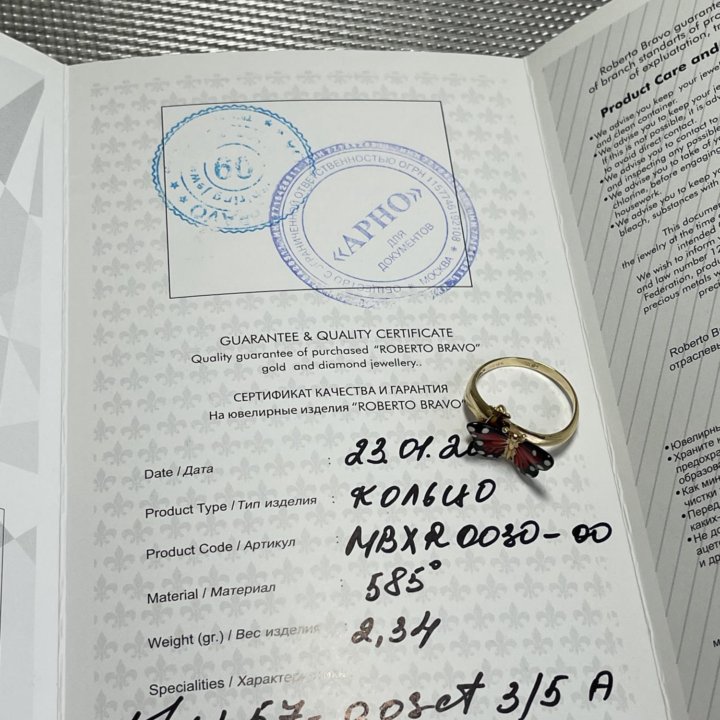 60
BRAVO
ОБЩЕСТВО С ОГРАНИЧЕННОЙ ОТВЕТСТВЕННОСТЬЮ ОГРН
«АРНО»
ДЛЯ
ДОКУМЕНТОВ
* МОСКВА *
GUARANTEE & QUALITY CERTIFICATE
Quality guarantee of purchased "ROBERTO BRAVO"
gold and diamond jewellery..
СЕРТИФИКАТ КАЧЕСТВА И ГАРАНТИЯ
На ювелирные изделия "ROBERTO BRAVO"
Date / Дата : 23.01.2
Product Type / Тип изделия : кольцо
Product Code / Артикул : MBXR0030-00
Material / Материал : 585°
Weight (gr.) / Вес изделия : 2,34
Specialities / Характер
57- 3/5 A
Roberto Bravo guarante
of branch standarts of pro
of expluatation, tr
Product Care and
•We advise you keep your jewel
and clean container.
•We advise you to keep your je
If this is not possible, it is adv
to avoid direct contact.
•We advise you to contact to
and inspecting any possible
•We advise you to take of y
chlorine, before engaging
housework.
•We advise you to keep yo
bleach, substances with
This docume
the jewelry at the time
intended
We wish to inform
and law number 1
Federation, produ
precious metals
preci
Roberto B
отраслев
•Ювелирны
•Храните к
предохра
образова
•Как мин
чистки
•Перед
каких-
•Не до
ацет
и др